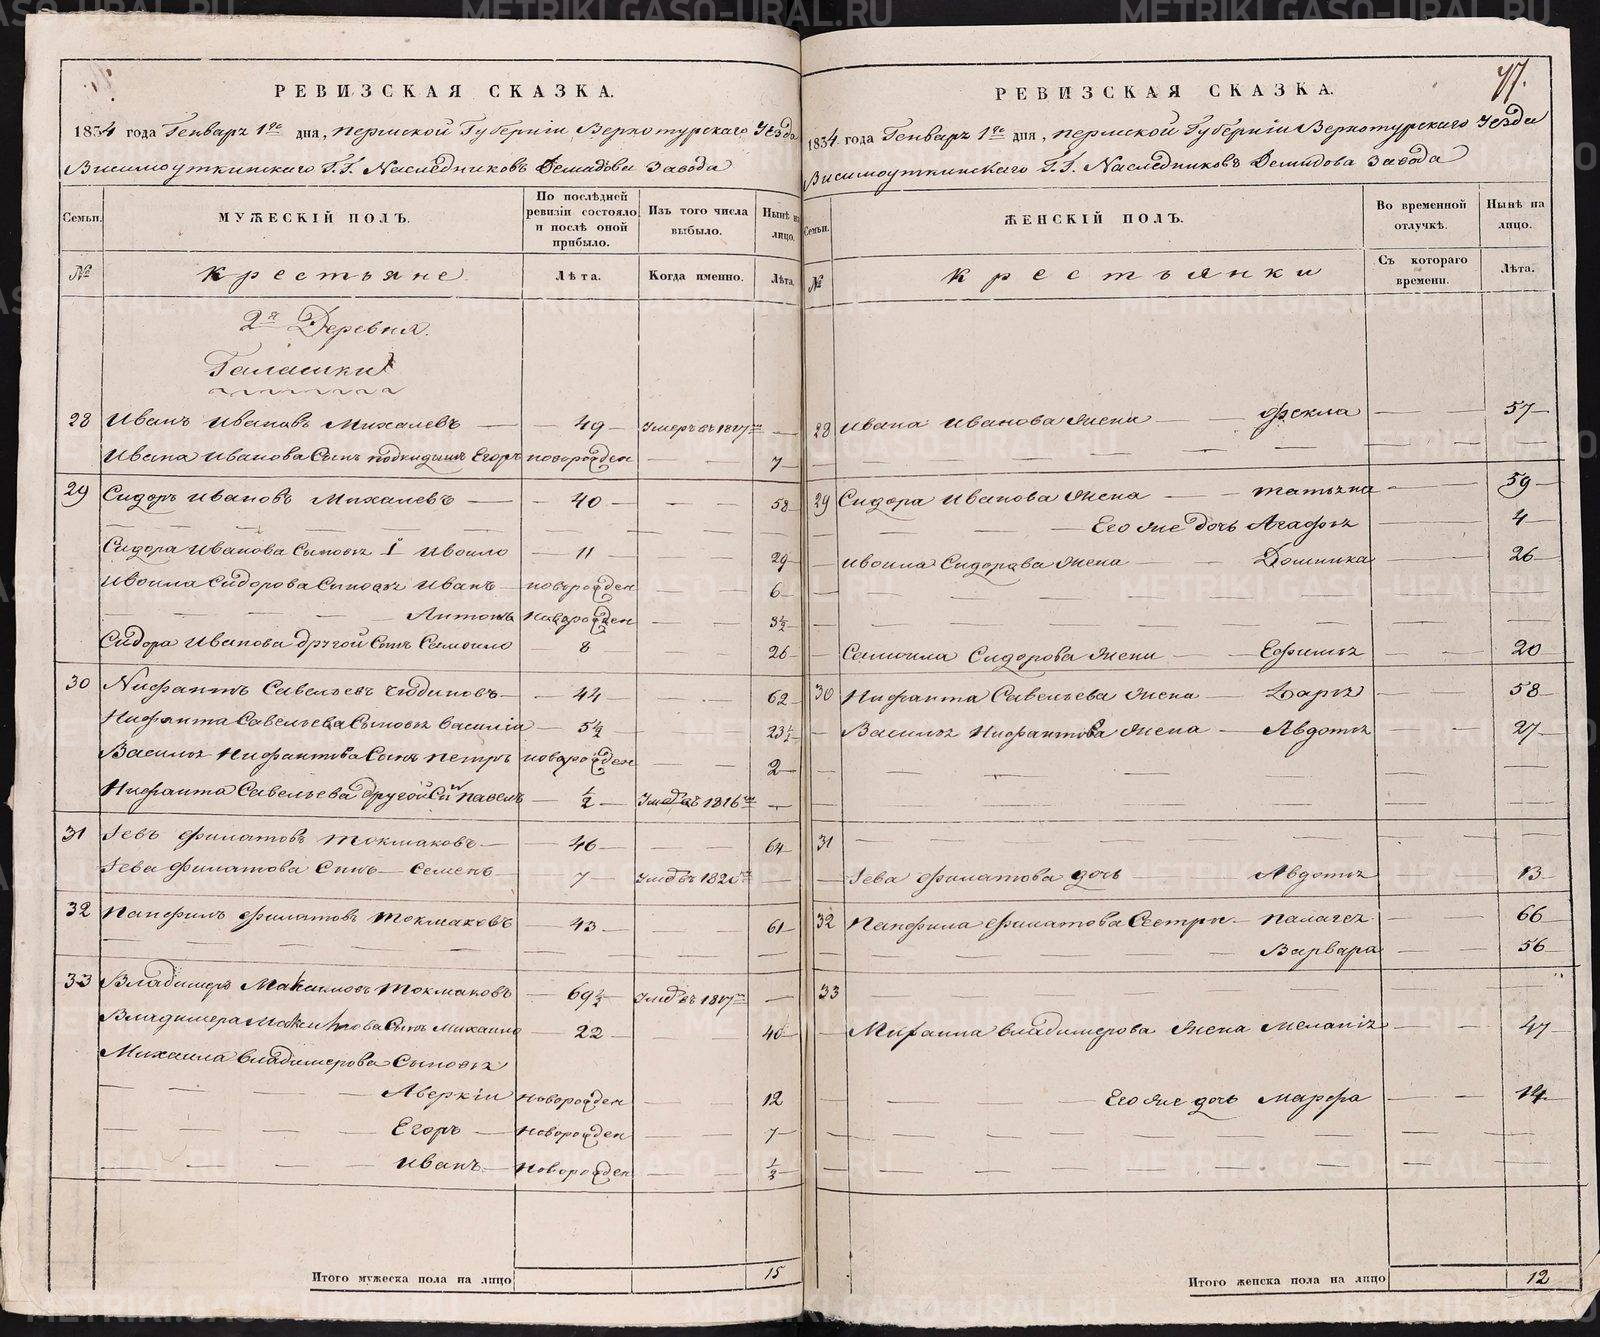 РЕВИЗСКАЯ СКАЗКА.
1834 года Генваря 1го дня, Пермской Губерніи Верхотурскаго Уезда
Висимоуткинскаго Г.Г. Наследниковъ Демидова Завода
Семьи.
МУЖЕСКІЙ ПОЛЪ.
По послѣдней ревизіи состояло и послѣ оной прибыло.
Изъ того числа выбыло.
Нынѣ на лицо.
№
Крестьяне
Лѣта.
Когда именно.
Лѣта.
2я Деревня.
Галашки
28 Иванъ Ивановъ Михалевъ 49 Умеръ въ 1827мъ
Ивана Иванова Сынъ подкидышъ Егоръ новорожден 7
29 Сидоръ Ивановъ Михалевъ 40 58
Сидора Иванова Сыновья 1 Ивоило 11 29
Ивоила Сидорова Сыновья Иванъ новорожден 6
Антонъ Новорожден 3½
Сидора Иванова другой Сынъ Самоило 8 26
30 Нифантъ Савельевъ 44 62
Нифанта Савельева Сыновья Василіи 5½ 23½
Василья Нифантова Сынъ Петръ новорожден 2
Нифанта Савельева другой Сынъ Павелъ ½ Умер въ 1816мъ
31 Іевъ Филатовъ Токмаковъ 46 64
Іева Филатова Сынъ Семенъ 7
32 Панфилъ Филатовъ Токмаковъ 43 61
33 Владимеръ Максимовъ Токмаковъ 69½
Владимера Максимова Сынъ Михаило 22 40
Михаила Владимерова Сыновья
Аверкіи Новорожден 12
Егоръ Новорожден 7
Иванъ Новорожден ⅓
Итого мужеска пола на лицо 15
77.
РЕВИЗСКАЯ СКАЗКА.
1834 года Генваря 1го дня, Пермской Губерніи Верхотурскаго Уезда
Висимоуткинскаго Г.Г. Наследниковъ Демидова Завода
Семьи.
ЖЕНСКІЙ ПОЛЪ.
Во временной отлучкѣ.
Нынѣ на лицо.
№
Крестьянки
Съ котораго времени.
Лѣта.
28 Ивана Иванова Жена Фекла 57
29 Сидора Иванова Жена Татьяна 59
Его же дочь Агафья 4
Ивоила Сидорова Жена Домника 26
Самоила Сидорова Жена Ефимья 20
30 Нифанта Савельева Жена Дарья 58
Василья Нифантова Жена Авдотья 27
31
Іева Филатова дочь Авдотья 13
32 Панфила Филатова Сестры Палагея 66
Варвара 56
33
Михаила Владимерова Жена Меланія 47
Его же дочь Марфа 14
Итого женска пола на лицо 12
METRIKI.GASO-URAL.RU